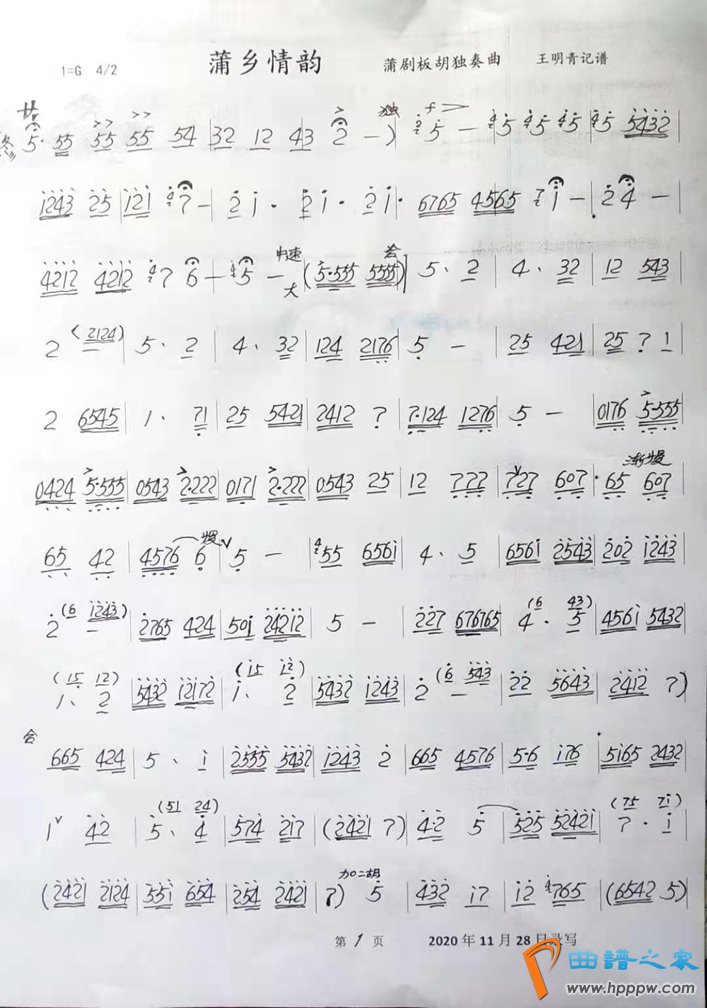 1=G 4/2 蒲乡情韵 蒲剧板胡独奏曲 王明青记谱
サ 独 f
5· 55 55 55 54 | 32 12 43 2 — ) 5 — | 5 5 5 | 5 5432 |
1243 25 | 121 7 — | 21· | 21· | 21· | 6765 4565 | 1 — | 24 — |
中速 大 会
4212 4212 | 7 6 — | 5 — (5·555 5555) | 5 · 2 | 4 · 32 | 12 543 |
2 (2124) | 5 · 2 | 4 · 32 | 124 2176 | 5 — | 25 421 | 25 7 1 |
2 6545 | 1 · 71 | 25 5421 | 2412 7 | 7·124 1276 | 5 — | 0176 5·555 |
渐慢
0424 5·555 | 0543 2·222 | 0171 2·222 | 0543 25 | 12 777 | 727 607 | 65 607 |
慢
65 42 | 4576 6 | 5 — | 55 6561 | 4 · 5 | 6561 2543 | 202 1243 |
2 (6 1243) | 2765 424 | 501 24212 | 5 — | 227 676765 | 4 · 5 (6 43) | 4561 5432 |
1 · 2 (15 12) | 5432 12172 | 1 · 2 (15 12) | 5432 1243 | 2 — (6 543) | 22 5643 | 2412 7 )
会
665 424 | 5 · 1 | 2555 5432 | 1243 2 | 665 4576 | 5·6 176 | 5165 2432 |
1 42 | 5 · 4 (51 24) | 574 217 | (2421 7) | 42 5 | 525 52421 | 7 · 1 (75 71) |
加二胡
(2421 2124 | 551 654 | 254 2421 | 7) 5 | 432 17 | 12 4765 | (6542 5) |
第 1 页 2020 年 11 月 28 日录写
曲谱之家
www.hpppw.com